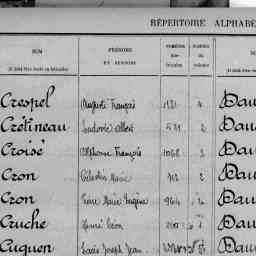 RÉPERTOIRE ALPHABÉ
NOM PRÉNOMS NUMÉROS NUMÉROS NOM
ET SURNOMS
Crespel Auguste François 1121 4 Dau
Crétineau Ludovic Albert 571 2 Dau
Croisé Alphonse François 1068 3 Dau
Cron Célestin Marie 712 2 Dau
Cron Pierre Marie Eugène 964 2 Dau
Cruche Henri Léon Dau
Cuguen Louis Joseph Jean Dau